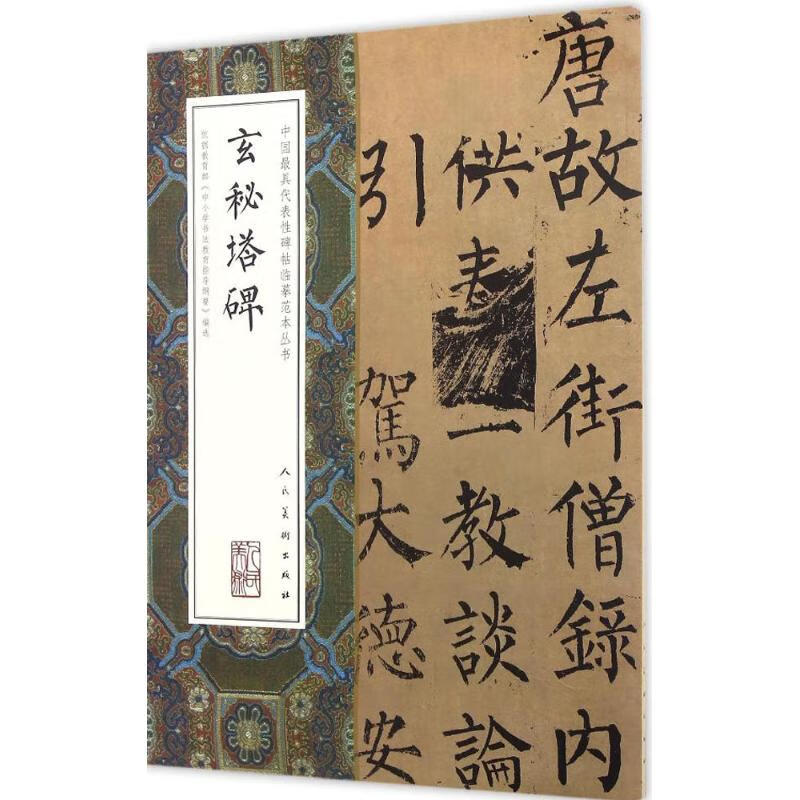 唐故左街僧錄内
供奉三教談論
引駕大德安
中国最具代表性碑帖临摹范本丛书
玄秘塔碑
依据教育部《中小学书法教育指导纲要》编选
人民美術出版社
人民美術